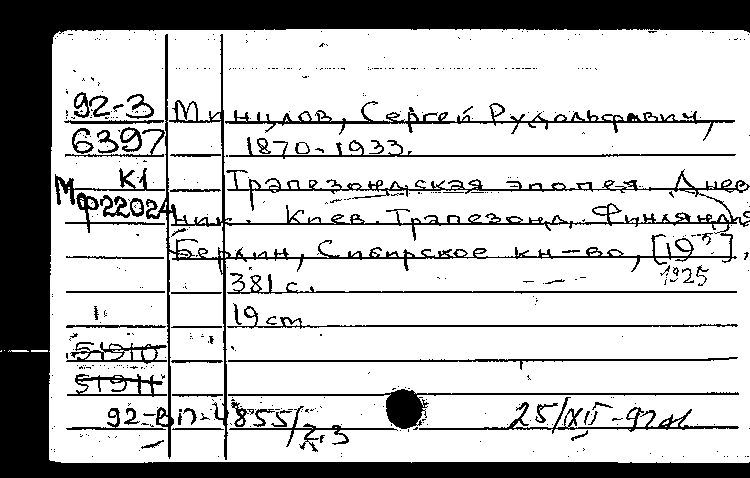 92-3 Минцлов, Сергей Рудольфович,
6397 1870-1933.
К1 Трапезондская эпопея. Днев
Мф22024 ник. Киев. Трапезонд. Финляндия
Берлин, Сибирское кн-во, [19?],
1925
381 с.
19 cm
51910
51911
92-ВП-4855/2,3